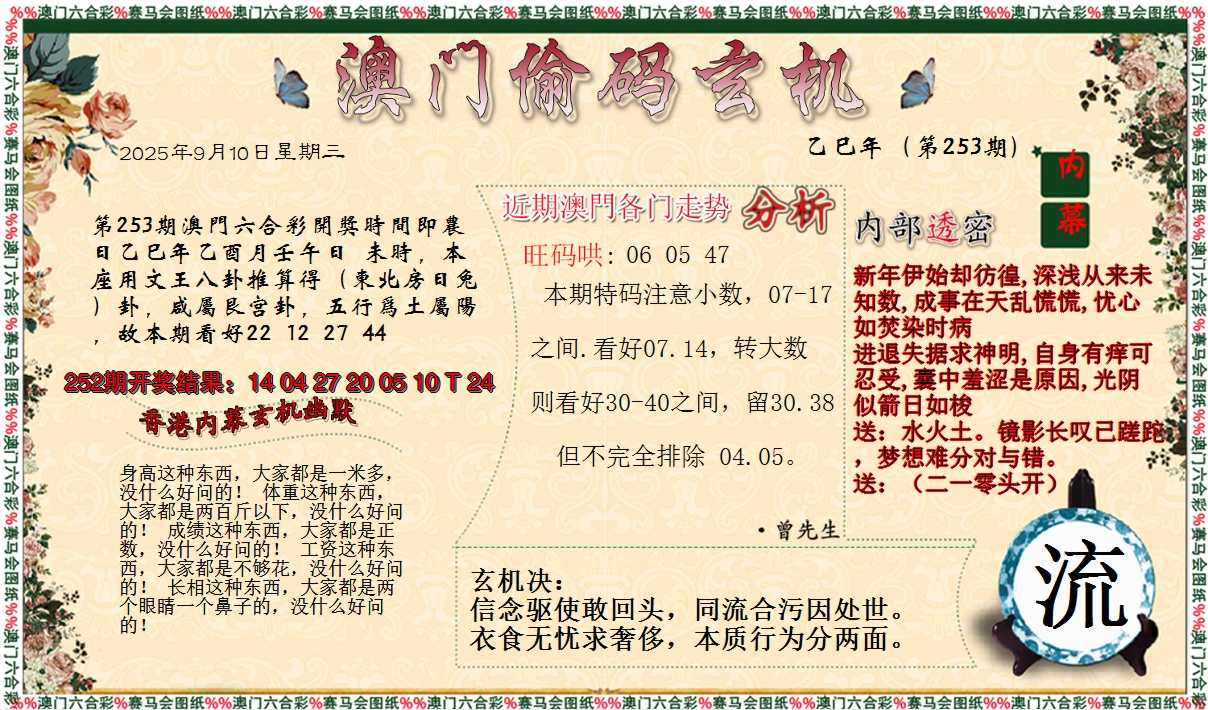 %%澳门六合彩%赛马会图纸%%澳门六合彩%赛马会图纸%%澳门六合彩%赛马会图纸%%澳门六合彩%赛马会图纸%%澳门六合彩%赛马会图纸%%澳门六合彩%赛马会图纸%%
澳门偷码玄机
2025年9月10日星期三
乙巳年（第253期）
内
幕
第253期澳門六合彩開獎時間即農
日乙巳年乙酉月壬午日 未時，本
座用文王八卦推算得（東北房日兔
）卦，咸屬艮宫卦，五行爲土屬陽
，故本期看好22 12 27 44
252期开奖结果：14 04 27 20 05 10 T 24
香港内幕玄机幽默
身高这种东西，大家都是一米多，
没什么好问的！ 体重这种东西，
大家都是两百斤以下，没什么好问
的！ 成绩这种东西，大家都是正
数，没什么好问的！ 工资这种东
西，大家都是不够花，没什么好问
的！ 长相这种东西，大家都是两
个眼睛一个鼻子的，没什么好问
的！
近期澳門各门走势 分析
旺码哄: 06 05 47
本期特码注意小数，07-17
之间.看好07.14，转大数
则看好30-40之间，留30.38
但不完全排除 04.05。
·曾先生
内部透密
新年伊始却彷徨,深浅从来未
知数,成事在天乱慌慌,忧心
如焚染时病
进退失据求神明,自身有痒可
忍受,囊中羞涩是原因,光阴
似箭日如梭
送：水火土。镜影长叹已蹉跎
，梦想难分对与错。
送：（二一零头开）
玄机决：
信念驱使敢回头，同流合污因处世。
衣食无忧求奢侈，本质行为分两面。
流
%%澳门六合彩%赛马会图纸%%澳门六合彩%赛马会图纸%%澳门六合彩%赛马会图纸%%澳门六合彩%赛马会图纸%%澳门六合彩%赛马会图纸%%澳门六合彩%赛马会图纸%%